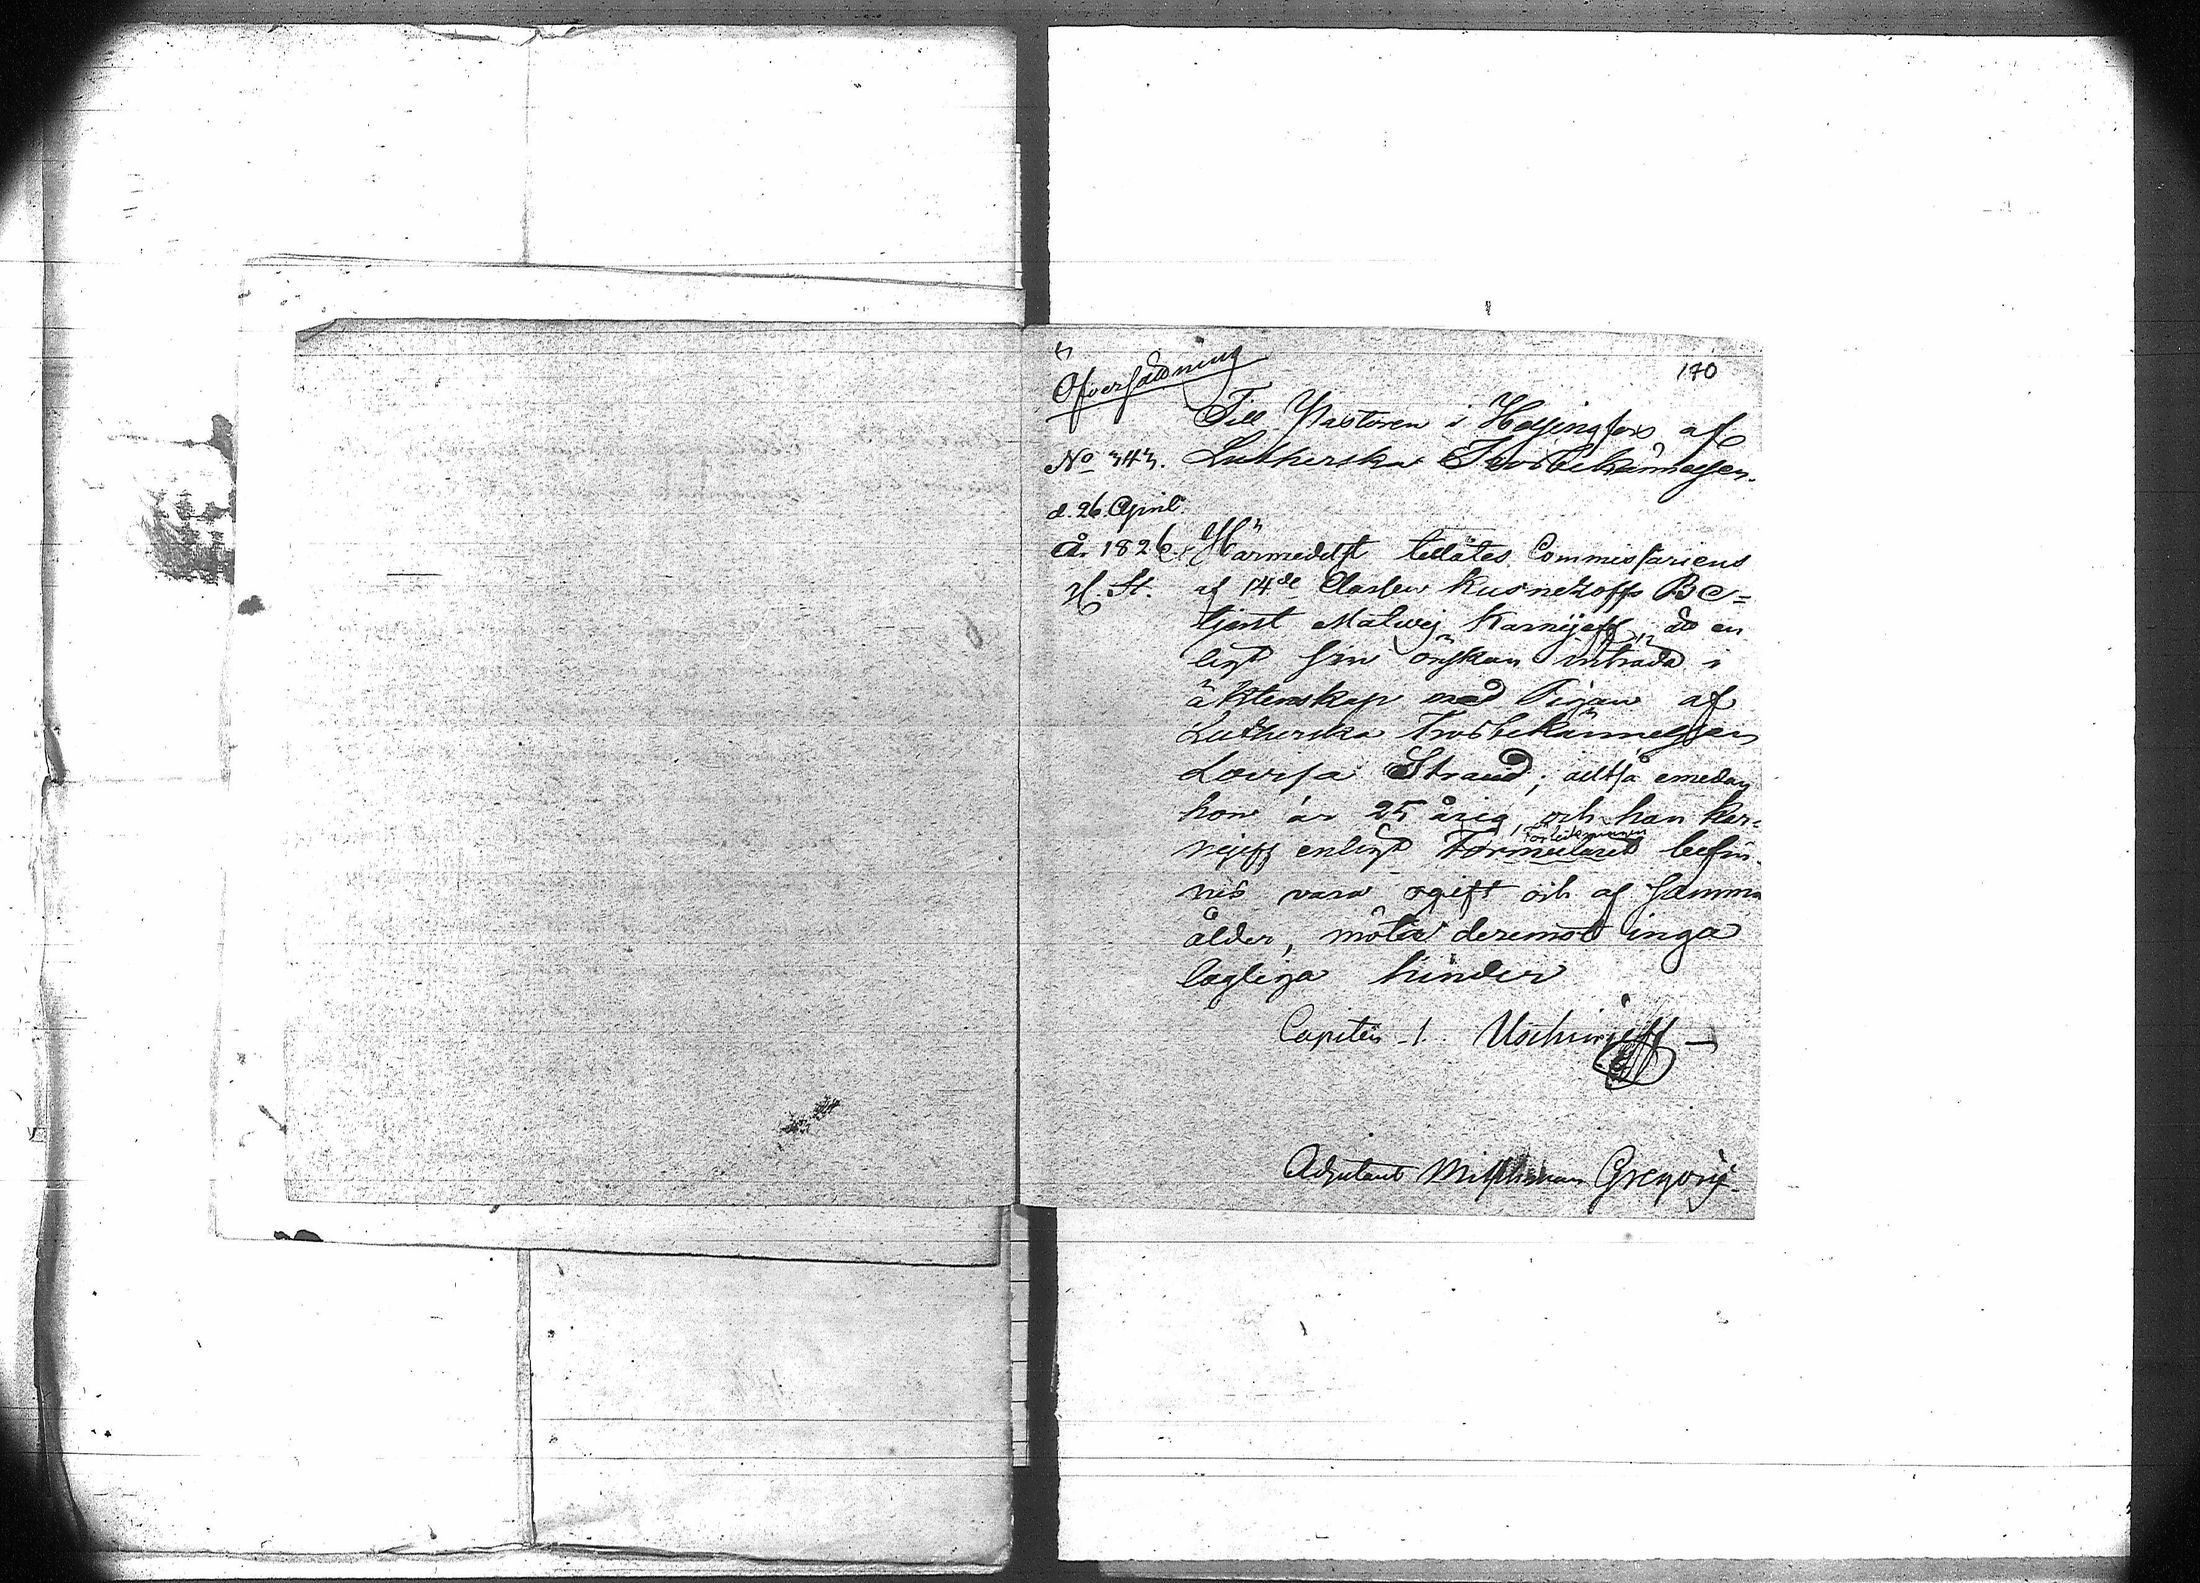 Öfversättning
170
Till Pastoren i Helsingfors af
No 343. Lutherska Trosbekännelsen.
d. 26. April.
År 1826. Härmedelst tillåtes Commissariens
H. St. af 14de Classen Kusnetzoffs Be=
tjent Matwej Karnijeff, då en
ligt sin önskan inträda i
äktenskap med Pigan af
Lutherska Trosbekännelsen
Lovisa Strand; alltså emedan
hon är 25 årig, och han Kar=
nijeff enligt Formularet befin-
nes vara ogift och af samma
ålder, möter deremot inga
lagliga hinder
Capiten 1. Uschinjeff
Adjutant Gregorij